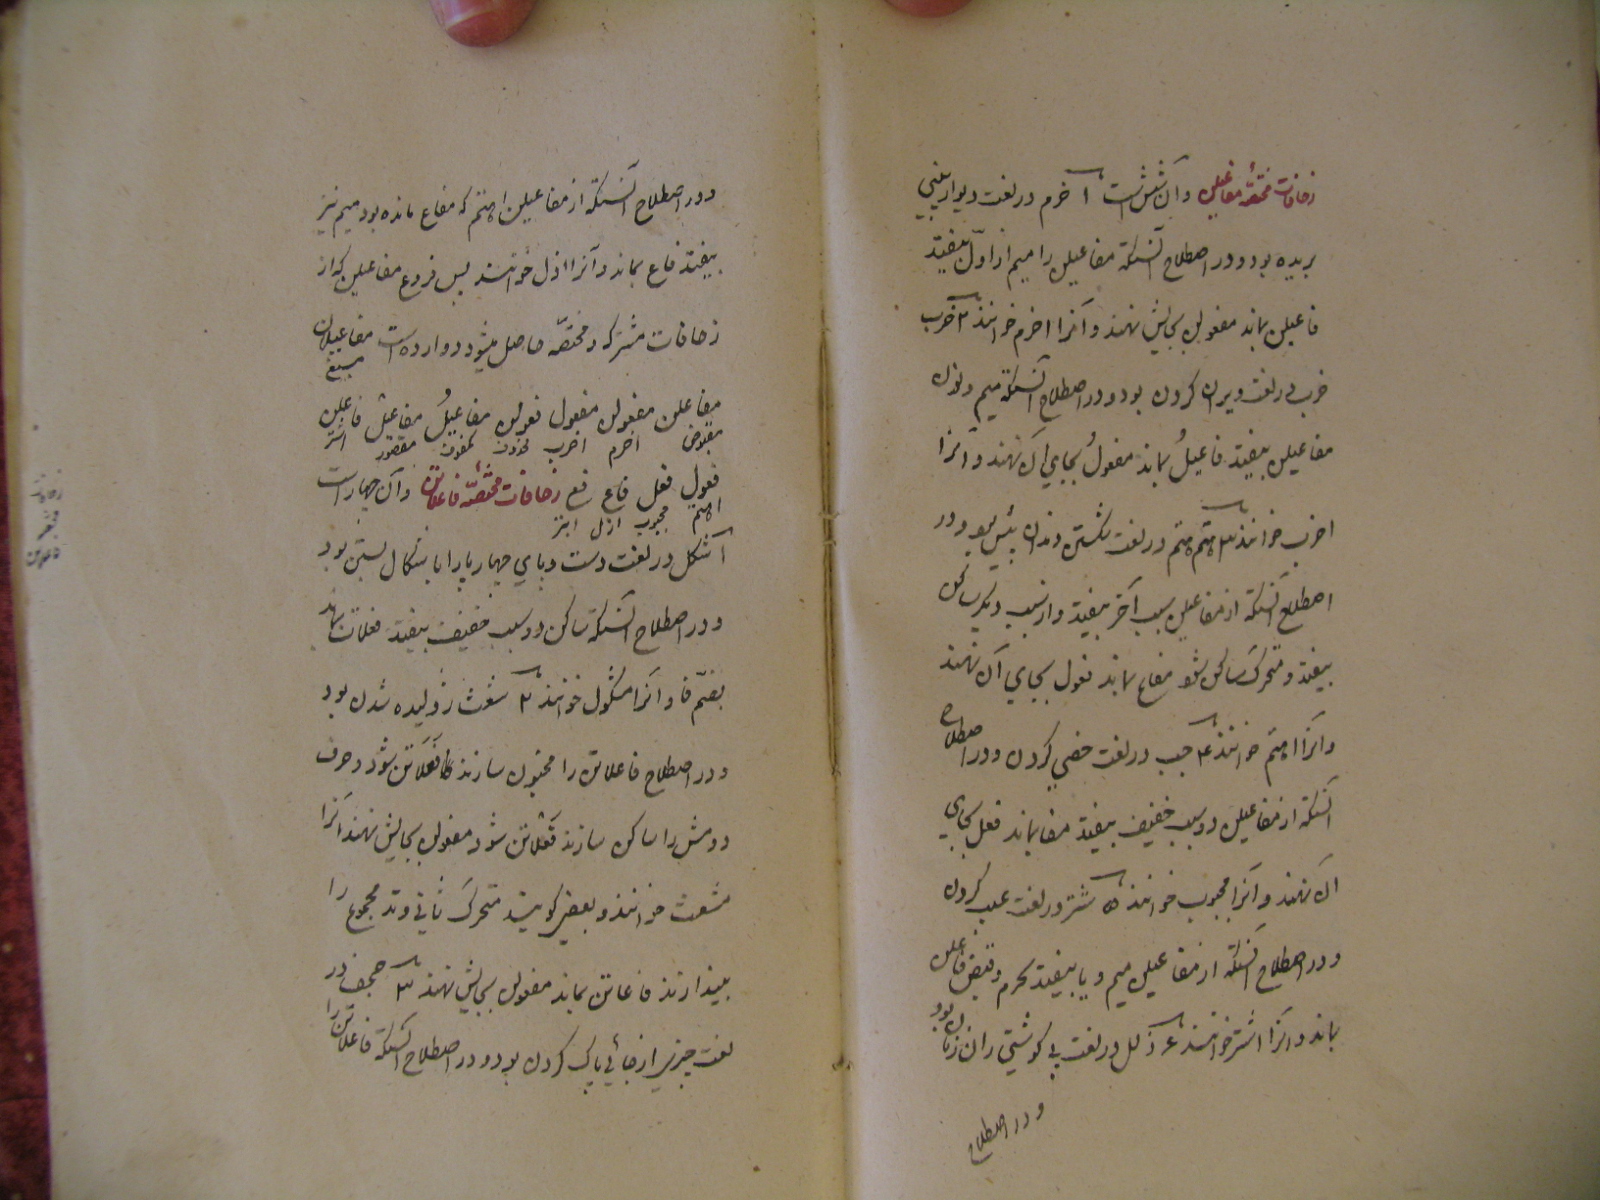 زحافات مختصّهٔ مفاعیلن وآن شش است ۱ خرم در لغت دیوار بینی
بریده بود و در اصطلاح آنستکه مفاعیلن را میم از اوّل بیفتد
فاعیلن بماند مفعولن بجایش نهند و آنرا اخرم خوانند ۲ خرب
خرب در لغت ویران کردن بود و در اصطلاح آنستکه میم و نون
مفاعیلن بیفتد فاعیلُ بماند مفعولُ بجای آن نهند و آنرا
اخرب خوانند ۳ هتم هتم در لغت شکستن دندان پیش بود و در
اصطلاح آنستکه از مفاعیلن سبب آخر بیفتد و از سبب دیگر ساکن
بیفتد و متحرک ساکن شود مفاع بماند فعول بجای آن نهند
و آنرا اهتم خوانند ۴ جب در لغت خصی کردن و در اصطلاح
آنستکه از مفاعیلن دو سبب خفیف بیفتد مفا بماند فعل بجای
آن نهند و آنرا مجبوب خوانند ۵ شتر در لغت عیب کردن
و در اصطلاح آنستکه از مفاعیلن میم و یا بیفتد بخرم و قبض فاعلن
بماند و آنرا اشتر خوانند ۶ زلل در لغت بی گوشتی ران زنان بود
و در اصطلاح
و در اصطلاح آنستکه از مفاعیلن اهتم که مفاع مانده بود میم نیز
بیفتد فاع بماند و آنرا ازل خوانند پس فروع مفاعیلن که از
زحافات مشترکه و مختصّه حاصل میشود دوازده است مفاعیلان
مسبغ
مفاعلن مفعولن مفعول فعولن مفاعیلُ مفاعیل فاعلن
مقبوض اخرم اخرب محذوف مکفوف مقصور اشتر
فعول فعل فاع فع زحافات مختصّهٔ فاعلاتن وآن چهار است
اهتم مجبوب ازل ابتر
۱ شکل در لغت دست و پای چهارپا را با شکال بستن بود
و در اصطلاح آنستکه ساکن دو سبب خفیف بیفتد فعلات بماند
بضمّ فا و آنرا مشکول خوانند ۲ شعث ژولیده شدن بود
و در اصطلاح فاعلاتن را مخبون سازند تا فعلاتن شود و حرف
دومش را ساکن سازند فعْلاتن شود مفعولن بجایش نهند آنرا
مشعث خوانند و بعضی گویند متحرک ثانی وتد مجموع را
بیندازند فاعاتن بماند مفعولن بجایش نهند ۳ جحف در
لغت چیزی از جائی پاک کردن بود و در اصطلاح آنستکه فاعلاتن را